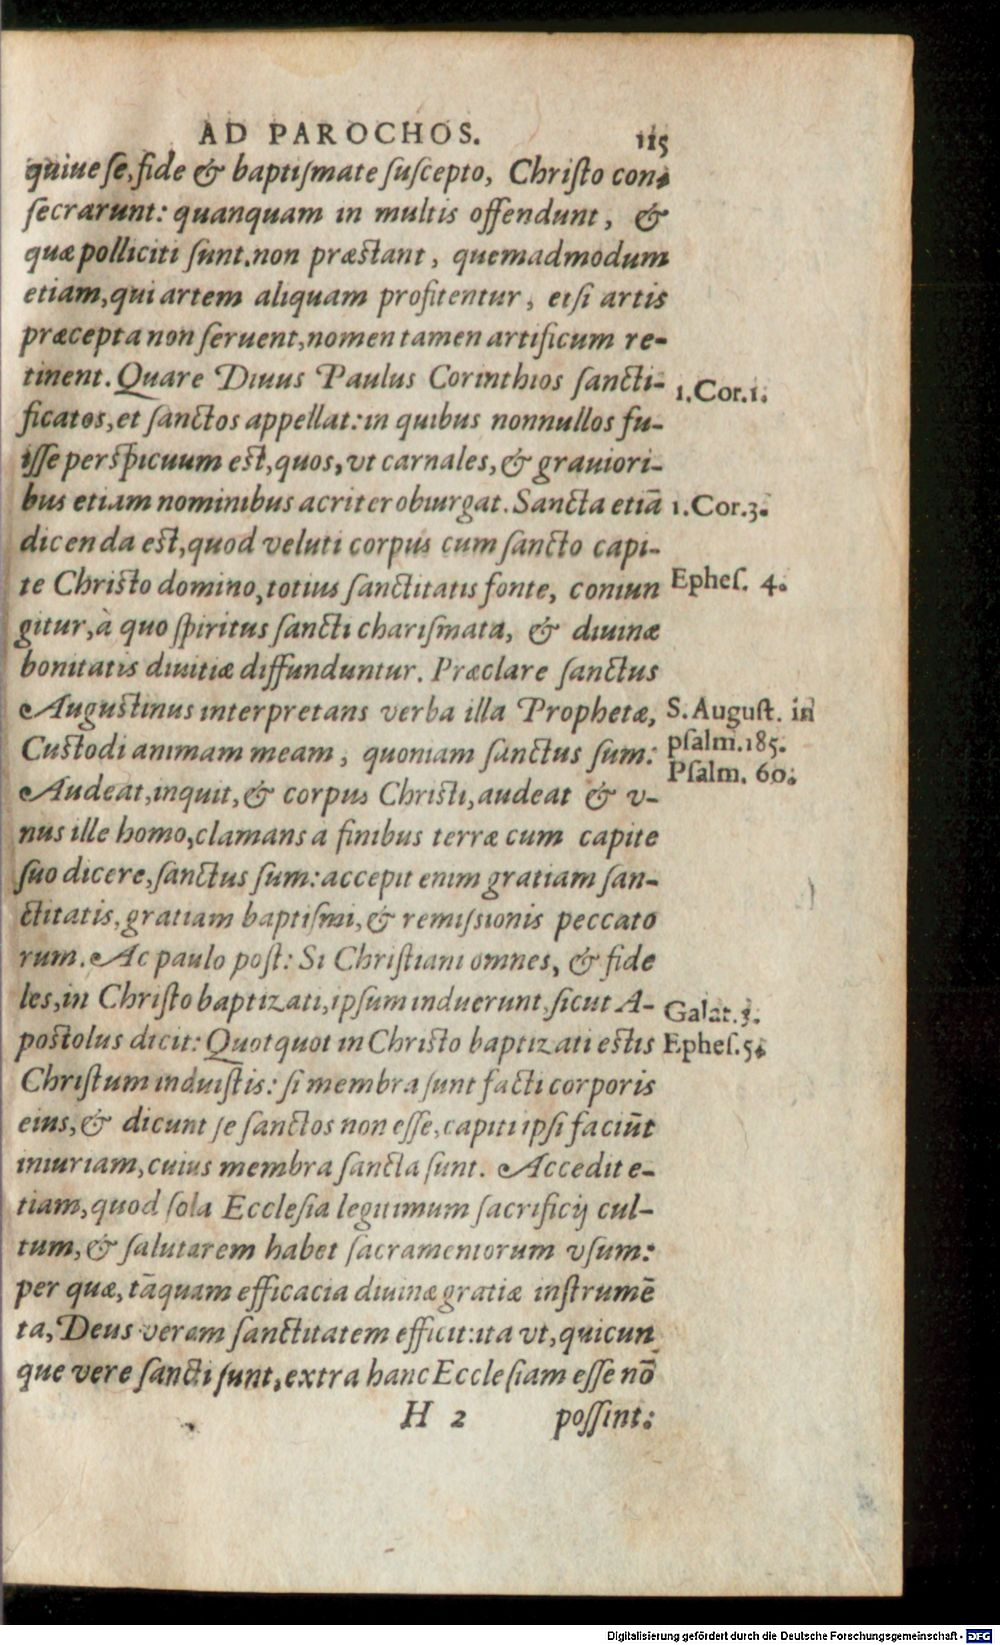 AD PAROCHOS. 115
quiue se, fide & baptiſmate ſuſcepto, Chriſto con-
ſecrarunt: quanquam in multis offendunt, &
quæ polliciti ſunt, non præſtant, quemadmodum
etiam, qui artem aliquam profitentur, etſi artis
præcepta non ſeruent, nomen tamen artificum re-
tinent. Quare Diuus Paulus Corinthios ſancti- 1. Cor. 1.
ficatos, et ſanctos appellat: in quibus nonnullos fu-
iſſe perſpicuum eſt, quos, vt carnales, & grauiori-
bus etiam nominibus acriter obiurgat. Sancta etiā 1. Cor. 3.
dicenda eſt, quod veluti corpus cum ſancto capi-
te Chriſto domino, totius ſanctitatis fonte, coniun Epheſ. 4.
gitur, à quo ſpiritus ſancti chariſmata, & diuinæ
bonitatis diuitiæ diffunduntur. Præclare ſanctus
Auguſtinus interpretans verba illa Prophetæ, S. Auguſt. in
Cuſtodi animam meam, quoniam ſanctus ſum: pſalm. 185.
Pſalm. 60.
Audeat, inquit, & corpus Chriſti, audeat & v-
nus ille homo, clamans a finibus terræ cum capite
ſuo dicere, ſanctus ſum: accepit enim gratiam ſan-
ctitatis, gratiam baptiſmi, & remiſsionis peccato
rum. Ac paulo poſt: Si Chriſtiani omnes, & fide
les, in Chriſto baptizati, ipſum induerunt, ſicut A- Galat. 3.
poſtolus dicit: Quotquot in Chriſto baptizati eſtis Epheſ. 5.
Chriſtum induiſtis: ſi membra ſunt facti corporis
eius, & dicunt ſe ſanctos non eſſe, capiti ipſi faciūt
iniuriam, cuius membra ſancta ſunt. Accedit e-
tiam, quod ſola Eccleſia legitimum ſacrificij cul-
tum, & ſalutarem habet ſacramentorum vſum:
per quæ, tāquam efficacia diuinæ gratiæ inſtrumē
ta, Deus veram ſanctitatem efficit: ita vt, quicun
que vere ſancti ſunt, extra hanc Eccleſiam eſſe nō
H 2 poſſint:
Digitalisierung gefördert durch die Deutsche Forschungsgemeinschaft - DFG